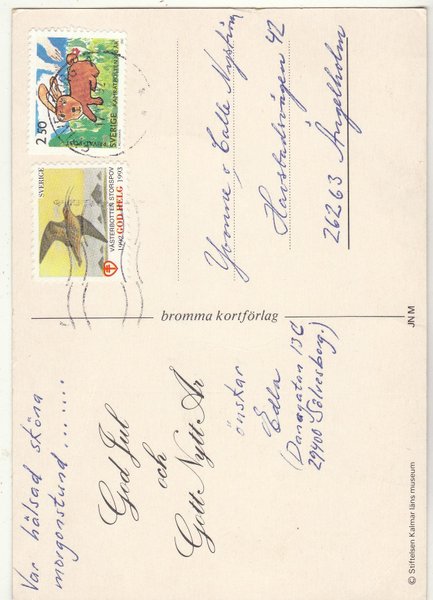 Var hälsad sköna
morgonstund.......
God Jul
och
Gott Nytt År
önskar
Edla
(Danagatan 13C
29400 Sölvesborg.)
© Stiftelsen Kalmar läns museum
bromma kortförlag
JN M
VÄSTERBOTTEN STORSPOV
1992 GOD HELG 1993
SVERIGE
2.50
SVERIGE
Yvonne o Calle Nyström
Havsbadsvägen 42
26263 Ängelholm